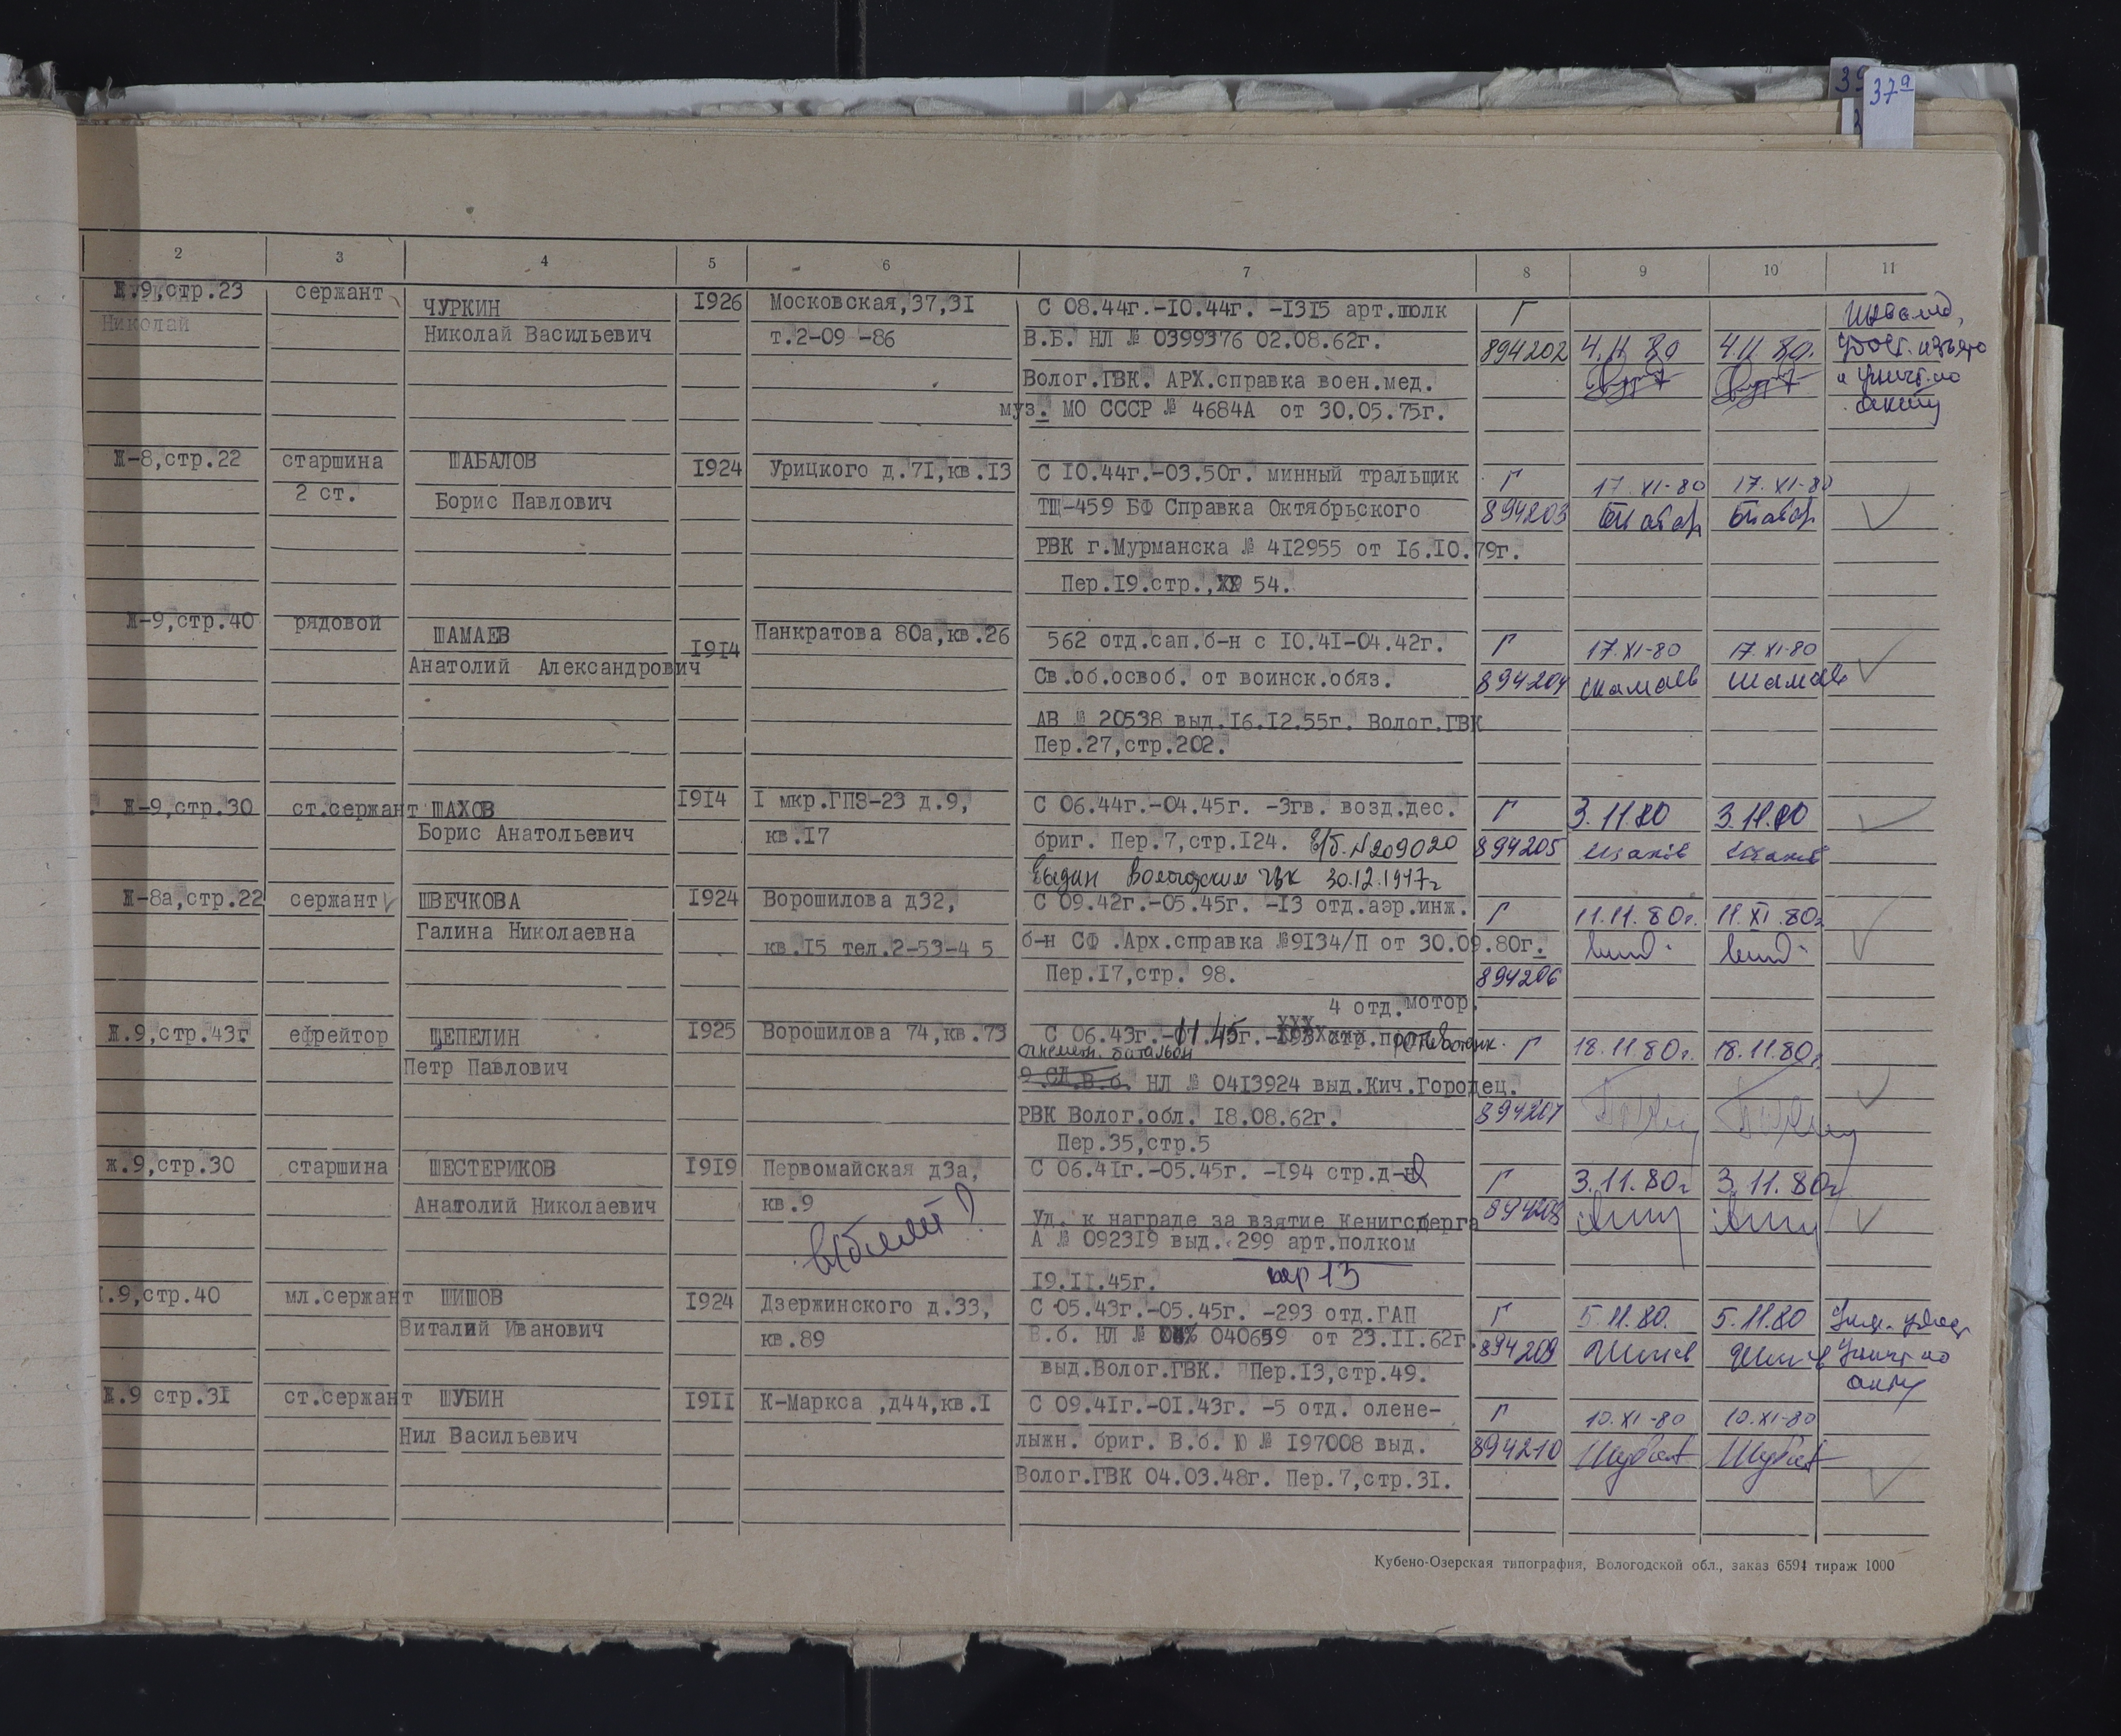 37а
2 3 4 5 6 7 8 9 10 11
Ж.9,стр.23 сержант ЧУРКИН 1926 Московская,37,31 С 08.44г.-10.44г. -1315 арт.полк Г Инвалид,
Николай Николай Васильевич т.2-09-86 В.Б. НЛ № 0399376 02.08.62г. 894202 4.11.80 4.11.80. удост. изъято
Волог.ГВК. АРХ.справка воен.мед. и уничт. по
муз. МО СССР № 4684А от 30.05.75г. акту
Ж-8,стр.22 старшина ШАБАЛОВ 1924 Урицкого д.71,кв.13 С 10.44г.-03.50г. минный тральщик Г 17.XI-80 17.XI-80
2 ст. Борис Павлович ТЩ-459 БФ Справка Октябрьского 894203
РВК г.Мурманска № 412955 от 16.10.79г.
Пер.19.стр., 54.
Ж-9,стр.40 рядовой ШАМАЕВ 1914 Панкратова 80а,кв.26 562 отд.сап.б-н с 10.41-04.42г. Г 17.XI-80 17.XI-80
Анатолий Александрович Св.об.освоб. от воинск.обяз. 894204 Шамаев Шамаев
АВ № 20538 выд.16.12.55г. Волог.ГВК
Пер.27,стр.202.
Ж-9,стр.30 ст.сержант ШАХОВ 1914 1 мкр.ГПЗ-23 д.9, С 06.44г.-04.45г. -3гв. возд.дес. Г 3.11.80 3.11.80
Борис Анатольевич кв.17 бриг. Пер.7,стр.124. В/б. №209020 894205 Шахов Шахов
Выдан Вологодским ГВК 30.12.1947г
Ж-8а,стр.22 сержант ШВЕЧКОВА 1924 Ворошилова д32, С 09.42г.-05.45г. -13 отд.аэр.инж. Г 11.11.80г. 11.XI.80г
Галина Николаевна кв.15 тел.2-53-4 5 б-н СФ .Арх.справка №9134/П от 30.09.80г.
Пер.17,стр. 98. 894206
4 отд.мотор.
Ж.9,стр.43г ефрейтор ЩЕПЕЛИН 1925 Ворошилова 74,кв.73 С 06.43г.-11.45г. -193 стр.полк Противотанк. Г 18.11.80г. 18.11.80г
Петр Павлович батальон
9 СД В.б. НЛ № 0413924 выд.Кич.Городец.
РВК Волог.обл. 18.08.62г. 894207
Пер.35,стр.5
ж.9,стр.30 старшина ШЕСТЕРИКОВ 1919 Первомайская д3а, С 06.41г.-05.45г. -194 стр.д- Г 3.11.80г 3.11.80г
Анатолий Николаевич кв.9 Уд. к награде за взятие Кенигсберга 894208
А № 092319 выд. 299 арт.полком
19.11.45г. пер 13
.9,стр.40 мл.сержант ШИШОВ 1924 Дзержинского д.33, С 05.43г.-05.45г. -293 отд.ГАП Г 5.11.80. 5.11.80
Виталий Иванович кв.89 В.б. НЛ № 040659 от 23.11.62г. 894209 Шишов Шишов уничт по
выд.Волог.ГВК. Пер.13,стр.49. акту
Ж.9 стр.31 ст.сержант ШУБИН 1911 К-Маркса ,д44,кв.1 С 09.41г.-01.43г. -5 отд. олене- Г 10.XI-80 10.XI-80
Нил Васильевич лыжн. бриг. В.б. Ю № 197008 выд. 894210 Шубин Шубин
Волог.ГВК 04.03.48г. Пер.7,стр.31.
Кубено-Озерская типография, Вологодской обл., заказ 6594 тираж 1000